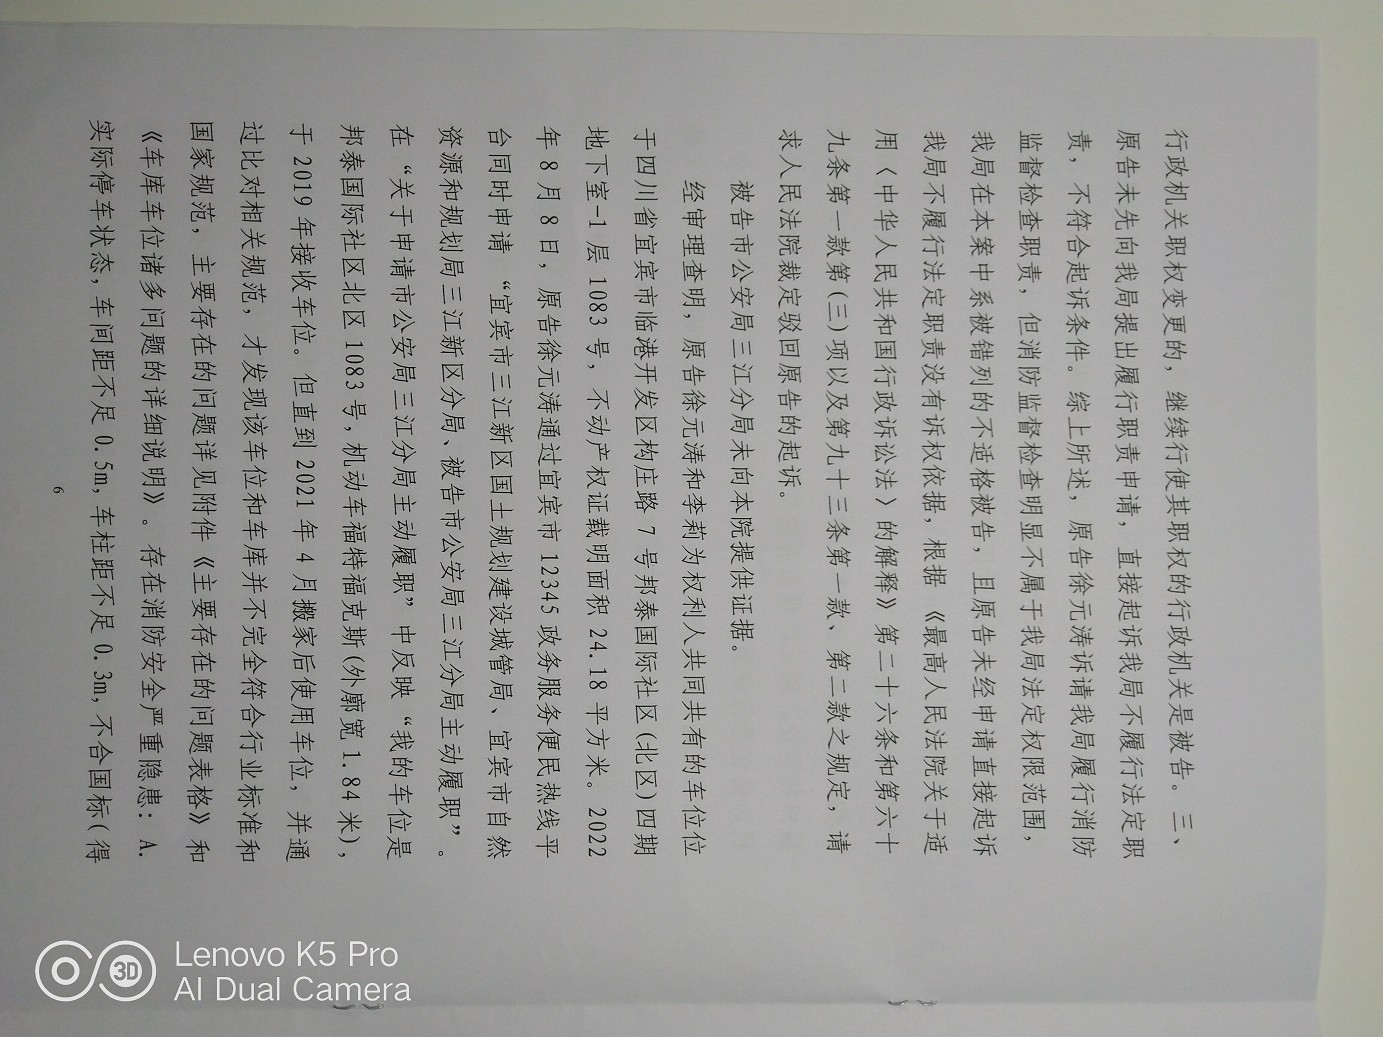 行政机关职权变更的，继续行使其职权的行政机关是被告。三、
原告未先向我局提出履行职责申请，直接起诉我局不履行法定职
责，不符合起诉条件。综上所述，原告徐元涛诉请我局履行消防
监督检查职责，但消防监督检查明显不属于我局法定权限范围，
我局在本案中系被错列的不适格被告，且原告未经申请直接起诉
我局不履行法定职责没有诉权依据，根据《最高人民法院关于适
用〈中华人民共和国行政诉讼法〉的解释》第二十六条和第六十
九条第一款第(三)项以及第九十三条第一款、第二款之规定，请
求人民法院裁定驳回原告的起诉。
被告市公安局三江分局未向本院提供证据。
经审理查明，原告徐元涛和李莉为权利人共同共有的车位位
于四川省宜宾市临港开发区构庄路 7 号邦泰国际社区(北区)四期
地下室-1 层 1083 号，不动产权证载明面积 24.18 平方米。2022
年 8 月 8 日，原告徐元涛通过宜宾市 12345 政务服务便民热线平
台同时申请 “宜宾市三江新区国土规划建设城管局、宜宾市自然
资源和规划局三江新区分局、被告市公安局三江分局主动履职”。
在 “关于申请市公安局三江分局主动履职” 中反映 “我的车位是
邦泰国际社区北区 1083 号，机动车福特福克斯(外廓宽 1.84 米)，
于 2019 年接收车位。但直到 2021 年 4 月搬家后使用车位，并通
过比对相关规范，才发现该车位和车库并不完全符合行业标准和
国家规范，主要存在的问题详见附件《主要存在的问题表格》和
《车库车位诸多问题的详细说明》。存在消防安全严重隐患：A.
实际停车状态，车间距不足 0.5m，车柱距不足 0.3m，不合国标(得
6
Lenovo K5 Pro
AI Dual Camera
3D